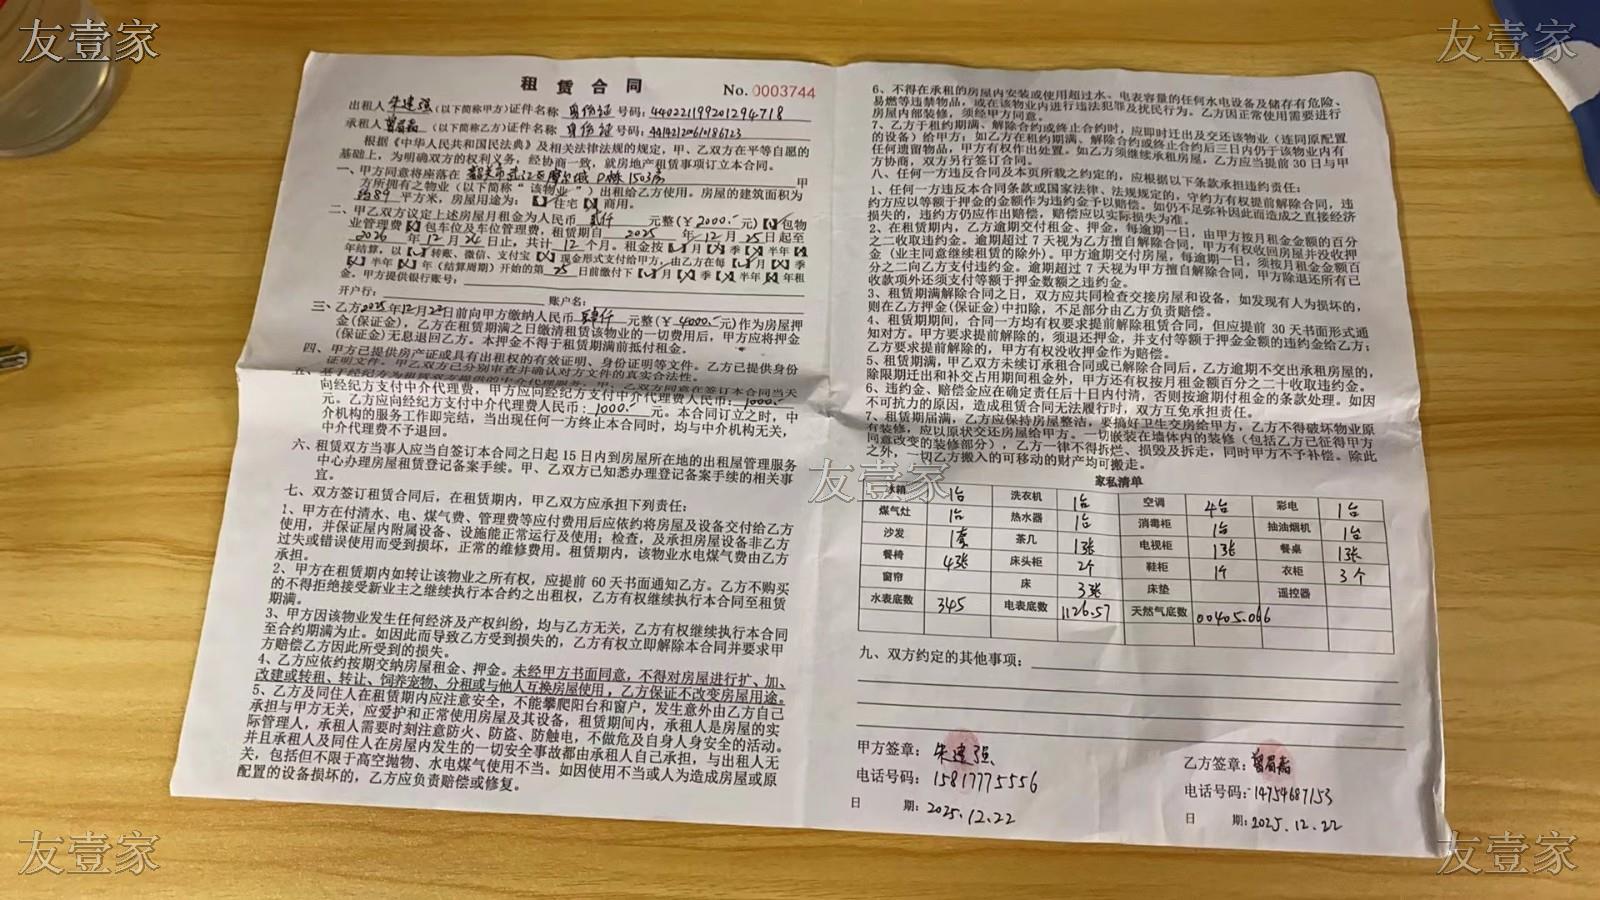 友壹家
友壹家
租 赁 合 同
No. 0003744
出租人 朱建强 (以下简称甲方) 证件名称 身份证 号码: 440221199201294718
承租人 (以下简称乙方) 证件名称 身份证 号码:
根据《中华人民共和国民法典》及相关法律法规的规定，甲、乙双方在平等自愿的
基础上，为明确双方的权利义务，经协商一致，就房地产租赁事项订立本合同。
一、甲方同意将座落在 韶关市武江区摩尔城 D栋 1503房 甲
方所拥有之物业（以下简称“该物业”）出租给乙方使用。房屋的建筑面积为
约89 平方米，房屋用途为:【✓】住宅【✗】商用。
二、甲乙双方议定上述房屋月租金为人民币 贰仟 元整(￥2000.-元)【✓】包物
业管理费【✗】包车位及车位管理费，租赁期自 2025 年 12 月 25 日起至
2026 年 12 月 24 日止，共计 12 个月。租金按【✓】月【✗】季【✗】半年【✗】
年结算，以【✓】转账、微信、支付宝【✗】现金形式支付给甲方，由乙方在每【✓】月【✗】季
【✗】半年【✗】年（结算周期）开始的第 25 日前缴付下【✓】月【✗】季【✗】半年【✗】年租
金。甲方提供银行账号:
开户行: 账户名:
三、乙方2025年12月22日前向甲方缴纳人民币 肆仟 元整(￥4000.-元)作为房屋押
金(保证金)，乙方在租赁期满之日缴清租赁该物业的一切费用后，甲方应将押金
(保证金)无息退回乙方。本押金不得于租赁期满前抵付租金。
四、甲方已提供房产证或具有出租权的有效证明、身份证明等文件。乙方已提供身份
证明文件。甲乙双方已分别审查并确认对方文件的真实合法性。
五、基于经纪方为租赁双方提供的中介代理服务，甲、乙双方同意在签订本合同当天
向经纪方支付中介代理费，甲方应向经纪方支付中介代理费人民币: 1000.-
元。乙方应向经纪方支付中介代理费人民币: 1000.- 元。本合同订立之时，中
介机构的服务工作即完结，当出现任何一方终止本合同时，均与中介机构无关，
中介代理费不予退回。
六、租赁双方当事人应当自签订本合同之日起 15 日内到房屋所在地的出租屋管理服务
中心办理房屋租赁登记备案手续。甲、乙双方已知悉办理登记备案手续的相关事
宜。
七、双方签订租赁合同后，在租赁期内，甲乙双方应承担下列责任:
1、甲方在付清水、电、煤气费、管理费等应付费用后应依约将房屋及设备交付给乙方
使用，并保证屋内附属设备、设施能正常运行及使用；检查，及承担房屋设备非乙方
过失或错误使用而受到损坏，正常的维修费用。租赁期内，该物业水电煤气费由乙方
承担。
2、甲方在租赁期内如转让该物业之所有权，应提前 60 天书面通知乙方。乙方不购买
的不得拒绝接受新业主之继续执行本合约之出租权，乙方有权继续执行本合同至租赁
期满。
3、甲方因该物业发生任何经济及产权纠纷，均与乙方无关，乙方有权继续执行本合同
至合约期满为止。如因此而导致乙方受到损失的，乙方有权立即解除本合同并要求甲
方赔偿乙方因此所受到的损失。
4、乙方应依约按期交纳房屋租金、押金。未经甲方书面同意，不得对房屋进行扩、加、
改建或转租、转让、饲养宠物、分租或与他人互换房屋使用，乙方保证不改变房屋用途。
5、乙方及同住人在租赁期内应注意安全，不能攀爬阳台和窗户，发生意外由乙方自己
承担与甲方无关，应爱护和正常使用房屋及其设备，租赁期间内，承租人是房屋的实
际管理人，承租人需要时刻注意防火、防盗、防触电，不做危及自身人身安全的活动。
并且承租人及同住人在房屋内发生的一切安全事故都由承租人自己承担，与出租人无
关，包括但不限于高空抛物、水电煤气使用不当。如因使用不当或人为造成房屋或原
配置的设备损坏的，乙方应负责赔偿或修复。
6、不得在承租的房屋内安装或使用超过水、电表容量的任何水电设备及储存有危险、
易燃等违禁物品，或在该物业内进行违法犯罪及扰民行为。乙方因正常使用需要进行
房屋内部装修，须经甲方同意。
7、乙方于租约期满、解除合约或终止合约时，应即时迁出及交还该物业（连同原配置
的设备）给甲方；如乙方在租约期满、解除合约或终止合约后三日内仍于该物业内有
任何遗留物品，甲方有权作出处置。如乙方须继续承租房屋，乙方应当提前 30 日与甲
方协商，双方另行签订合同。
八、任何一方违反合同及本页所载之约定的，应根据以下条款承担违约责任:
1、任何一方违反本合同条款或国家法律、法规规定的，守约方有权提前解除合同，违
约方应以等额于押金的金额作为违约金予以赔偿。如仍不足弥补因此而造成之直接经济
损失的，违约方仍应作出赔偿，赔偿应以实际损失为准。
2、在租赁期内，乙方逾期交付租金、押金，每逾期一日，由甲方按月租金金额的百分
之二收取违约金。逾期超过 7 天视为乙方擅自解除合同，甲方有权收回房屋并没收押
金（业主同意继续租赁的除外）。甲方逾期交付房屋，每逾期一日，须按月租金金额百
分之二向乙方支付违约金。逾期超过 7 天视为甲方擅自解除合同，甲方除退还所有已
收款项外还须支付等额于押金数额之违约金。
3、租赁期满解除合同之日，双方应共同检查交接房屋和设备，如发现有人为损坏的，
则在乙方押金(保证金)中扣除，不足部分由乙方负责赔偿。
4、租赁期期间，合同一方均有权要求提前解除租赁合同，但应提前 30 天书面形式通
知对方。甲方要求提前解除的，须退还押金，并支付等额于押金金额的违约金给乙方；
乙方要求提前解除的，甲方有权没收押金作为赔偿。
5、租赁期满，甲乙双方未续订承租合同或已解除合同后，乙方逾期不交出承租房屋的，
除限期迁出和补交占用期间租金外，甲方还有权按月租金金额百分之二十收取违约金。
6、违约金、赔偿金应在确定责任后十日内付清，否则按逾期付租金的条款处理。如因
不可抗力的原因，造成租赁合同无法履行时，双方互免承担责任。
7、租赁期届满，乙方应保持房屋整洁，要搞好卫生交房给甲方，乙方不得破坏物业原
有装修，应以原状交还房屋给甲方。一切嵌装在墙体内的装修（包括乙方已征得甲方
同意改变的装修部分），乙方一律不得拆烂、损毁及拆走，同时甲方不予补偿。除此
之外，一切乙方搬入的可移动的财产均可搬走。
友壹家
家私清单
冰箱 1台 洗衣机 1台 空调 4台 彩电 1台
煤气灶 1台 热水器 1台 消毒柜 1台 抽油烟机 1台
沙发 1套 茶几 1张 电视柜 1张 餐桌 1张
餐椅 4张 床头柜 2个 鞋柜 1个 衣柜 3个
窗帘 床 3张 床垫 遥控器
水表底数 345 电表底数 1126.57 天然气底数 00405.066
九、双方约定的其他事项:
甲方签章: 朱建强
电话号码: 15817775556
日 期: 2025.12.22
乙方签章:
电话号码: 14754687153
日 期: 2025.12.22
友壹家
友壹家